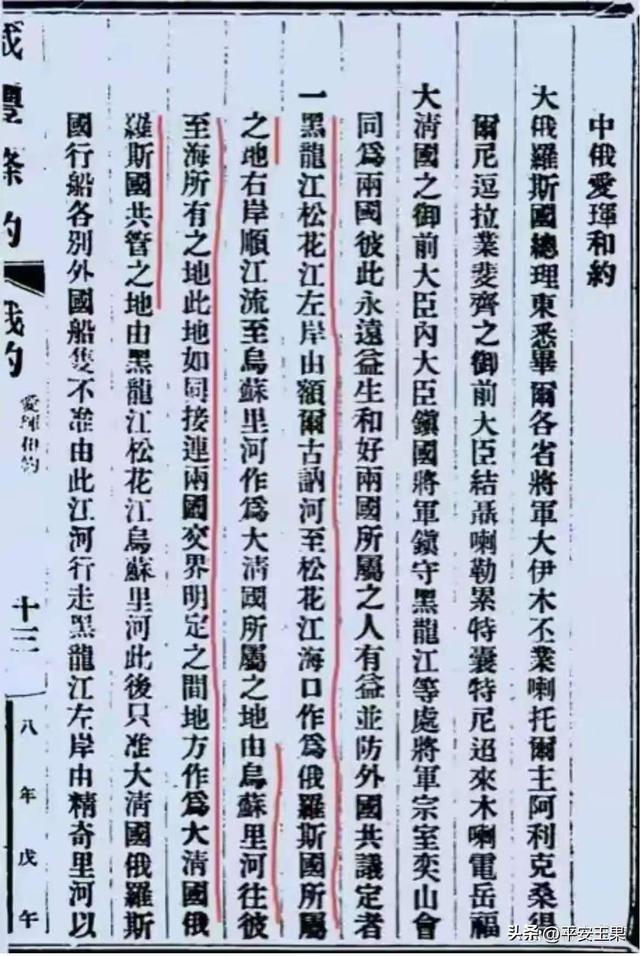 中俄愛琿和約
大俄羅斯國總理東悉畢爾各省將軍大伊木丕業喇托爾主阿利克桑得
爾尼逗拉業斐齊之御前大臣結聶喇勒累特囊特尼迢來木喇電岳福
大清國之御前大臣內大臣鎮國將軍鎮守黑龍江等處將軍宗室奕山會
同爲兩國彼此永遠益生和好兩國所屬之人有益並防外國共議定者
一黑龍江松花江左岸由額爾古訥河至松花江海口作爲俄羅斯國所屬
之地右岸順江流至烏蘇里河作爲大清國所屬之地由烏蘇里河往彼
至海所有之地此地如同接連兩國交界明定之間地方作爲大清國俄
羅斯國共管之地由黑龍江松花江烏蘇里河此後只准大清國俄羅斯
國行船各別外國船隻不准由此江河行走黑龍江左岸由精奇里河以
咸豐條約 俄約 愛琿和約 十三 八年戊午
头条 @平安玉果